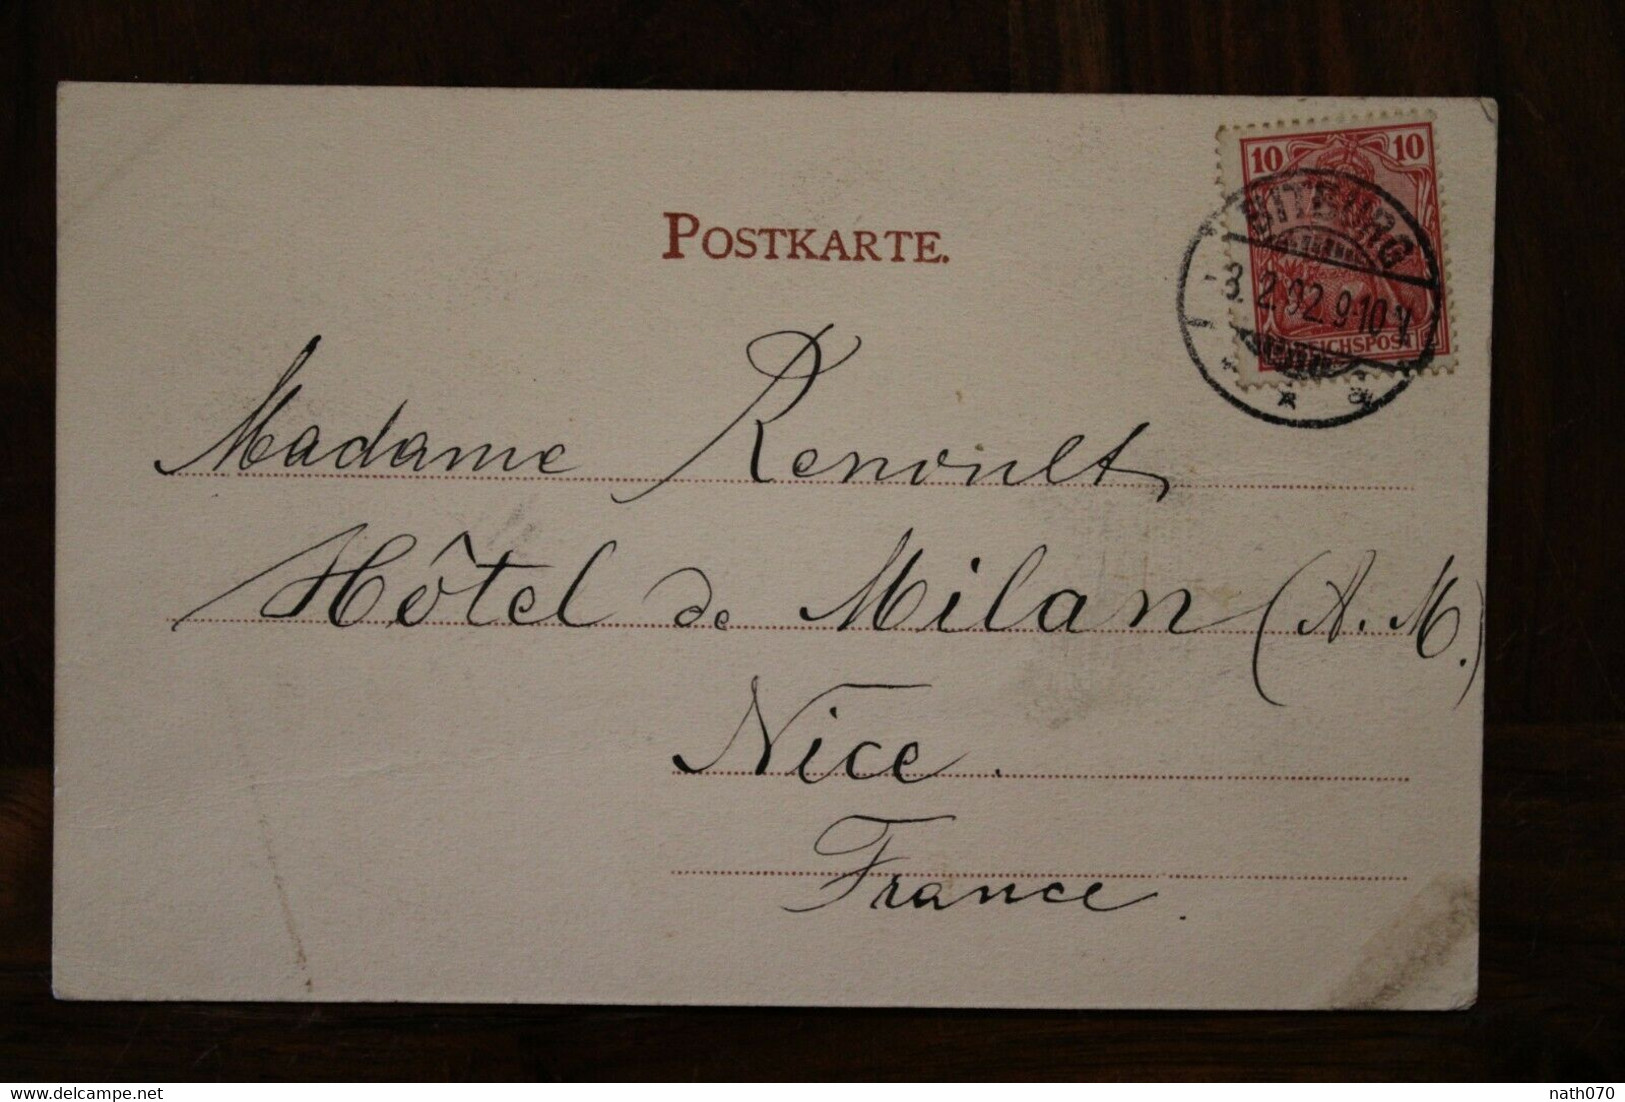 POSTKARTE.
10 10
BITBURG
3.2.02.9-10 V
REICHSPOST
a
Madame Renoult,
Hôtel de Milan (A.M.)
Nice.
France.
delcampe.net
nath070